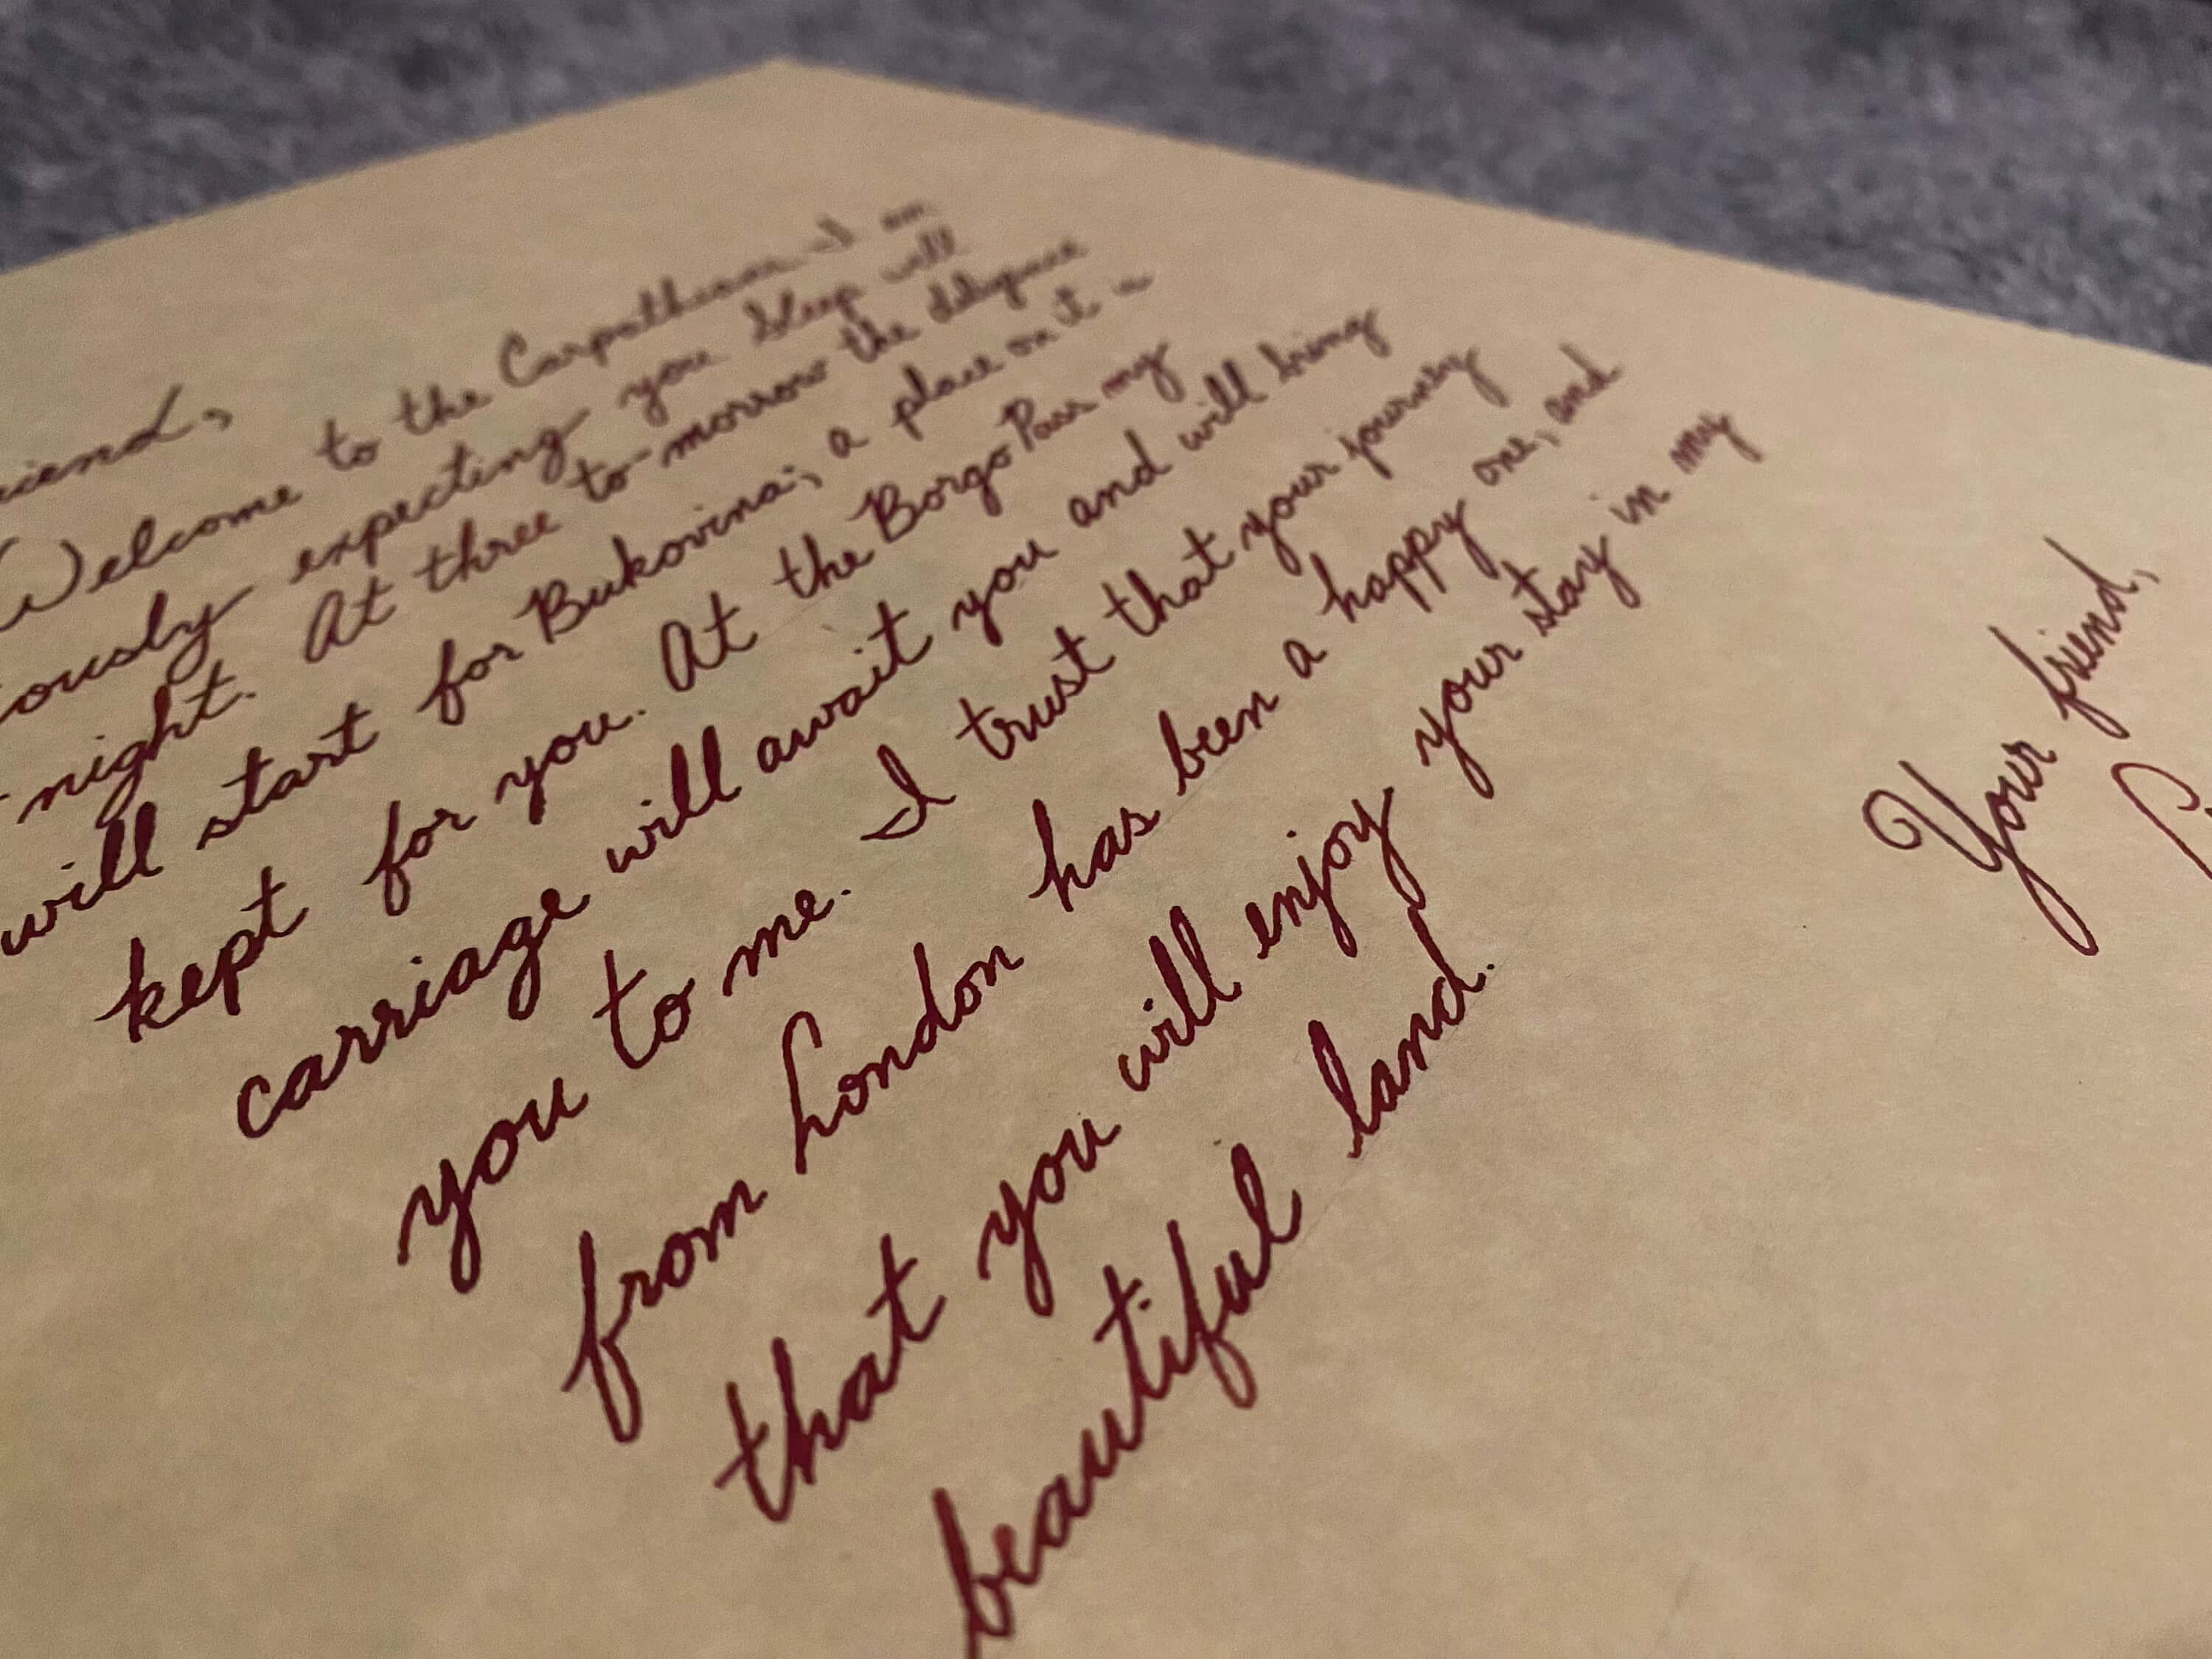 riend,
Welcome to the Carpathians. I am
iously expecting you Sleep will
night. At three to-morrow the diligence
will start for Bukovina; a place on it is
kept for you. At the Borgo Pass my
carriage will await you and will bring
you to me. I trust that your journey
from London has been a happy one, and
that you will enjoy your stay in my
beautiful land.
Your friend,